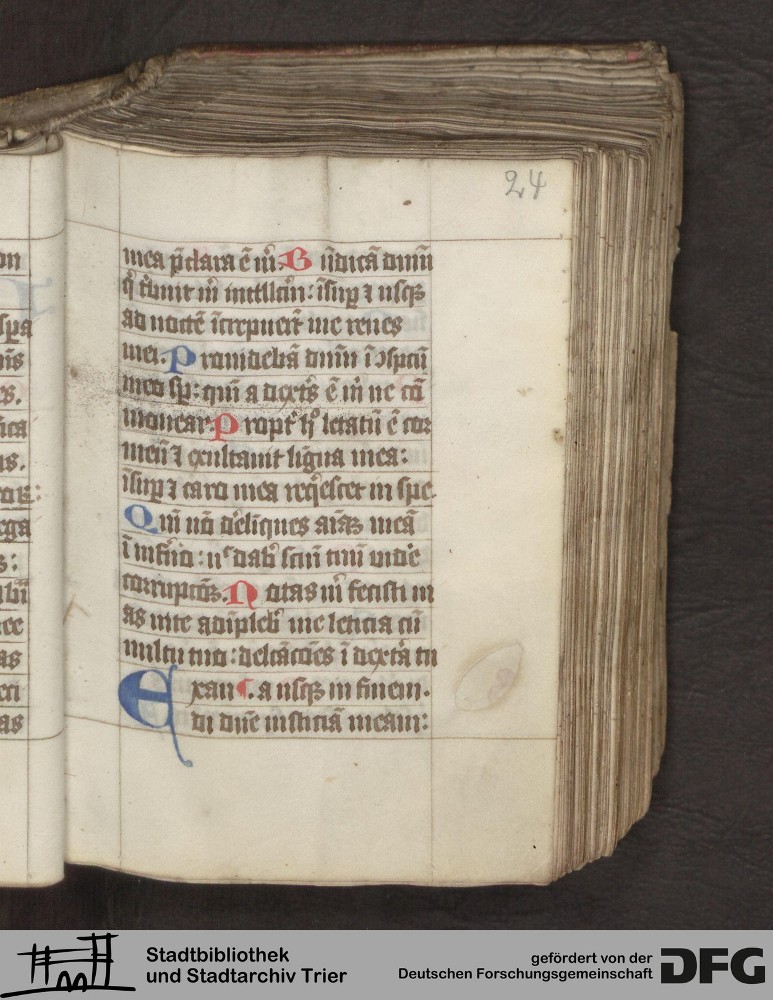 24
mea p̄clara ē m̄. B n̄dicā dnm̄
q̄ t̄buit m̄ intllcm̄: īsup ⁊ usqꝫ
ad noctē īcrepuer̄t me renes
mei. P rouidebā dnm̄ ī ↄspcū
meo sp̄: qm̄ a dext̄s ē m̄ ne cō
mouear. P ropt̄ hͦ letatū ē cor
meū ⁊ exultauit ligna mea:
īsup ⁊ caro mea reqͥescet in spe.
Q m̄ nō d̄eliques aīaꝫ meā
ī inf̄no: nͨ dab̄ scm̄ tuū vid̄e
corrupcōꝫ. N otas m̄ fecisti ui
as uite adīpleb̄ me leticia cū
multu tuo: delcācōes ī dext̄a tu
E xau a usqꝫ in finem.
di dn̄e iusticiā meam:
on
spa
nis
es.
ica
us.
rga
s:
bii
nec
as
as
Stadtbibliothek
und Stadtarchiv Trier
gefördert von der
Deutschen Forschungsgemeinschaft
DFG